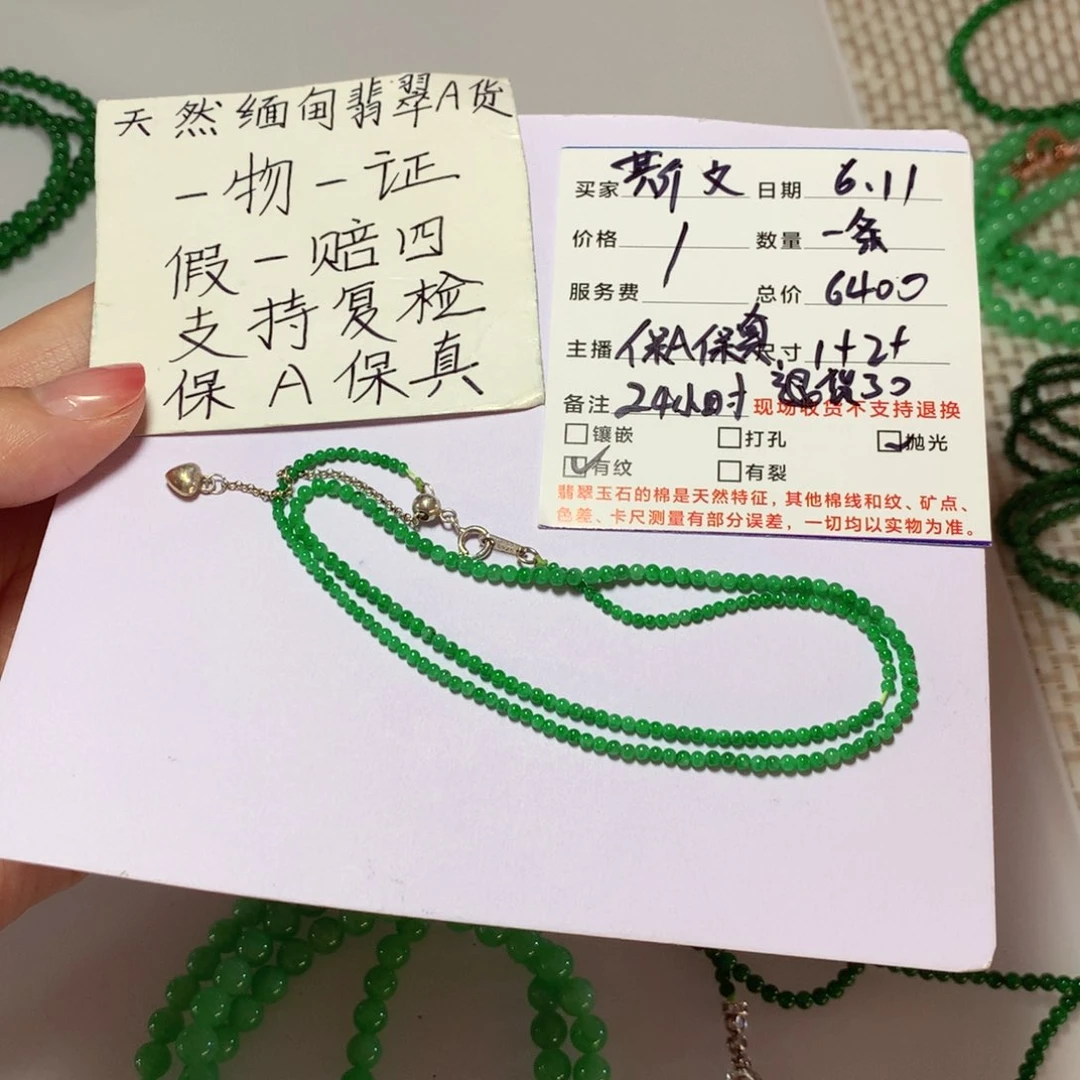 天然缅甸翡翠A货
一物一证
假一赔四
支持复检
保A保真
买家 斯文 日期 6.11
价格 / 数量 一条
服务费 总价 6400
主播 保A保真 尺寸 1+2+
备注 24小时 退货30 现场收货不支持退换
镶嵌 打孔 抛光
有纹 有裂
翡翠玉石的棉是天然特征，其他棉线和纹、矿点、
色差、卡尺测量有部分误差，一切均以实物为准。